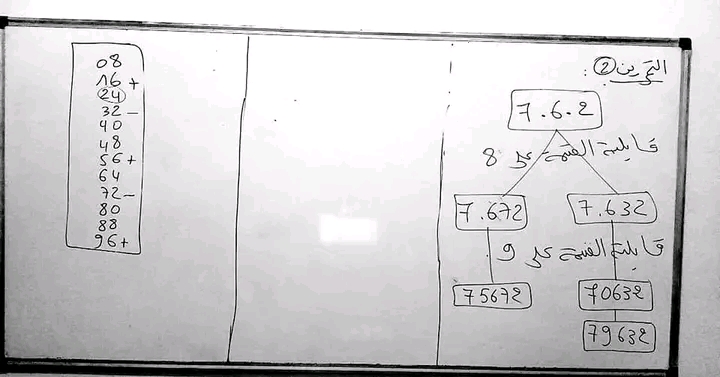 التمرين ②:
7.6.2
قابلية القسمة على 8
7.672 7.632
قابلية القسمة على 9.
75672 70632
79632
08
16 +
24
32 –
40
48
56 +
64
72 –
80
88
96 +